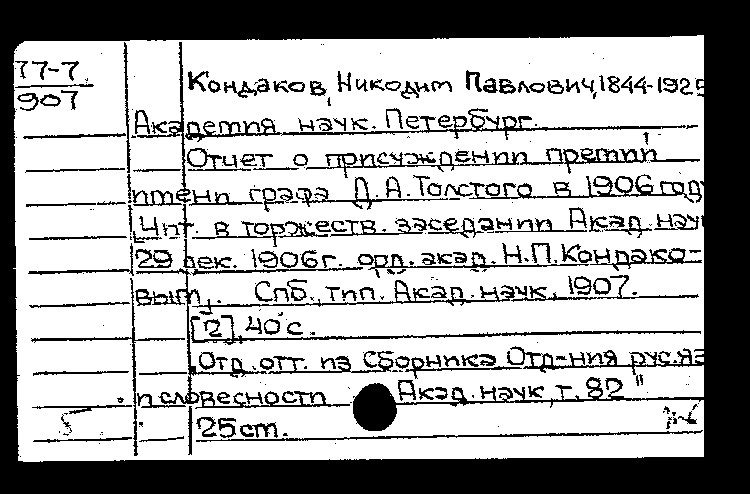 77-7
907
Кондаков, Никодим Павлович, 1844-1925
Академия наук. Петербург.
Отчет о присуждении премий
имени графа Д.А.Толстого в 1906 году
[Чит. в торжеств. заседании Акад. наук
29 дек. 1906г. орд. акад. Н.П.Кондако-
вым]. Спб., тип. Акад. наук, 1907.
[2], 40 с.
"Отд. отт. из Сборника Отд-ния рус.яз
и словесности Акад. наук, т. 82"
25см.